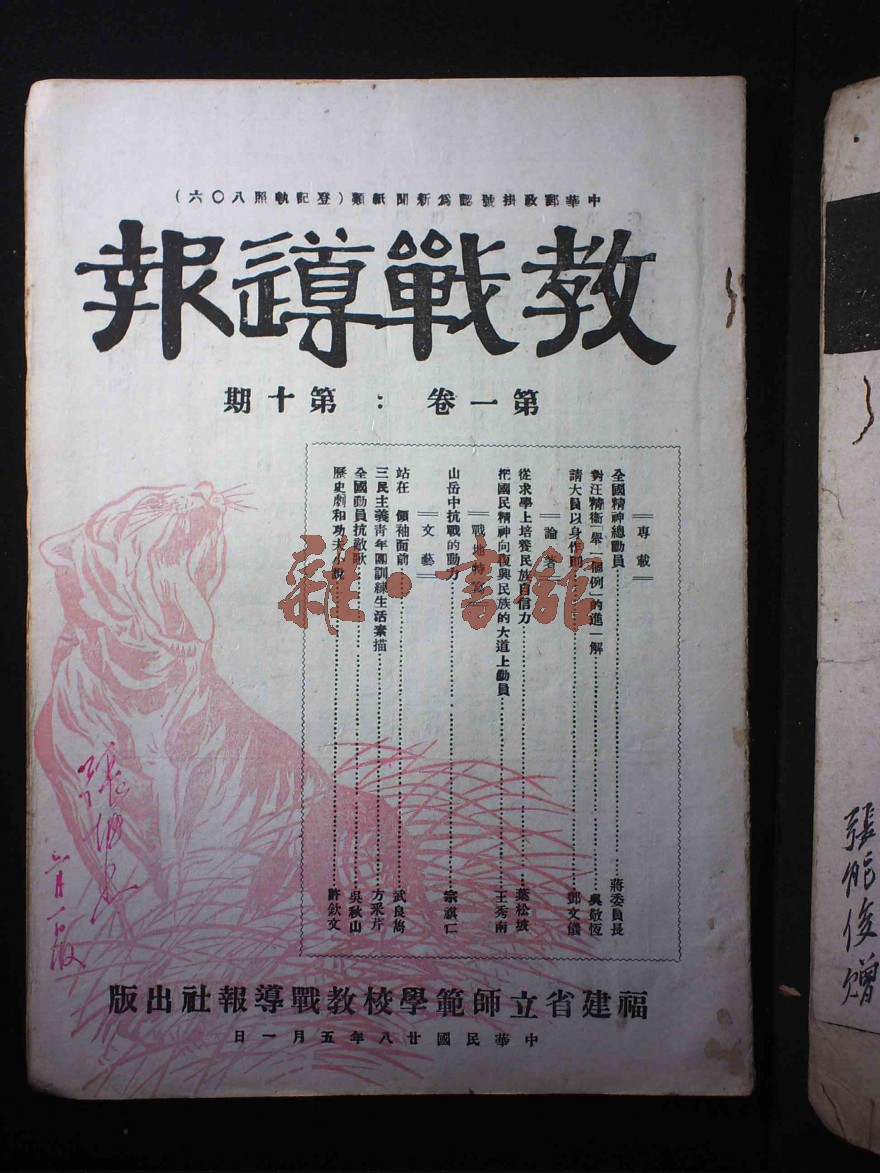 中華郵政掛號認爲新聞紙類（登記執照八〇六）
教戰導報
第一卷：第十期
專載
全國精神總動員……蔣委員長
對汪精衛「舉一個例」的進一解……吳敬恆
請大員以身作則……鄧文儀
論著
從求學上培養民族自信力……葉松坡
把國民精神向復興民族的大道上動員……王秀南
戰地特寫
山岳中抗戰的動力……宗祺仁
文藝
站在 領袖面前……武良鴆
三民主義青年團訓練生活素描……方采芹
全國動員抗敵歌……吳秋山
歷史劇和功夫小說……許欽文
福建省立師範學校教戰導報社出版
中華民國廿八年五月一日
雜·書館
張能俊贈